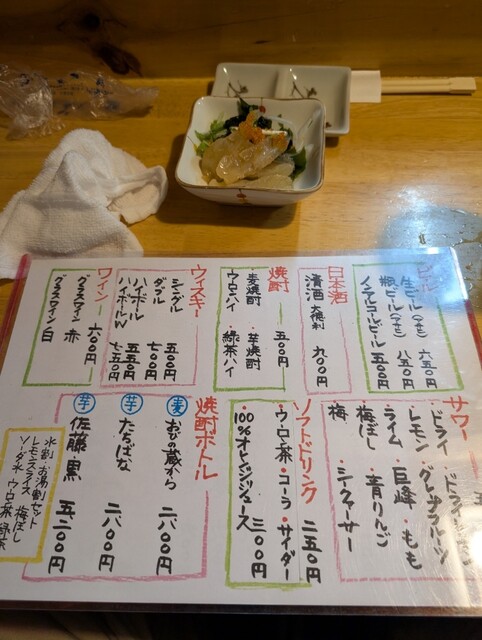 ビール
生ビール(中モ) 六五〇円
瓶ビール(中モ) 八五〇円
ノンアルコールビール 五〇〇円
日本酒
清酒 大徳利 九〇〇円
焼酎
麦焼酎・芋焼酎 五〇〇円
ウーロンハイ・緑茶ハイ
ウィスキー
シングル 五〇〇円
ダブル 七〇〇円
ハイボール 五五〇円
ハイボールW 七五〇円
ワイン
グラスワイン 赤 六〇〇円
グラスワイン 白
サワー
・ドライ・ドライ
・レモン・グレープフルーツ
・ライム・巨峰・もも
・梅ぼし・青りんご
・梅・シークワーサー
ソフトドリンク
・ウーロン茶・コーラ・サイダー 二五〇円
・100%オレンジジュース 三〇〇円
焼酎ボトル
麦 おびの蔵から 二八〇〇円
芋 たちばな 二八〇〇円
芋 佐藤 黒 五二〇〇円
水割・お湯割セット
レモンスライス 梅ぼし
ソーダ水 ウーロン茶 緑茶